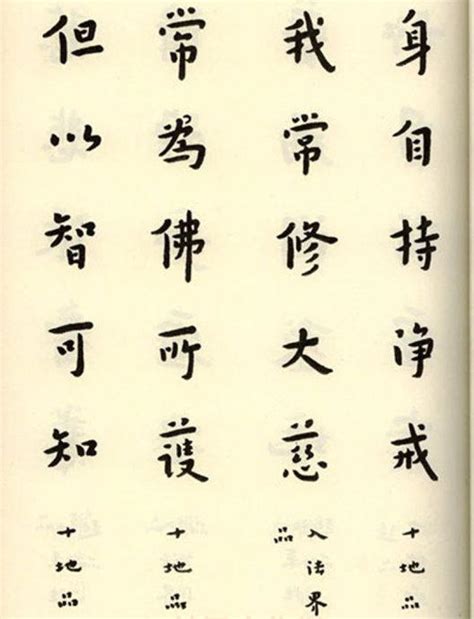 身自持淨戒 十地品
我常修大慈 入法界品
常為佛所護 十地品
但以智可知 十地品